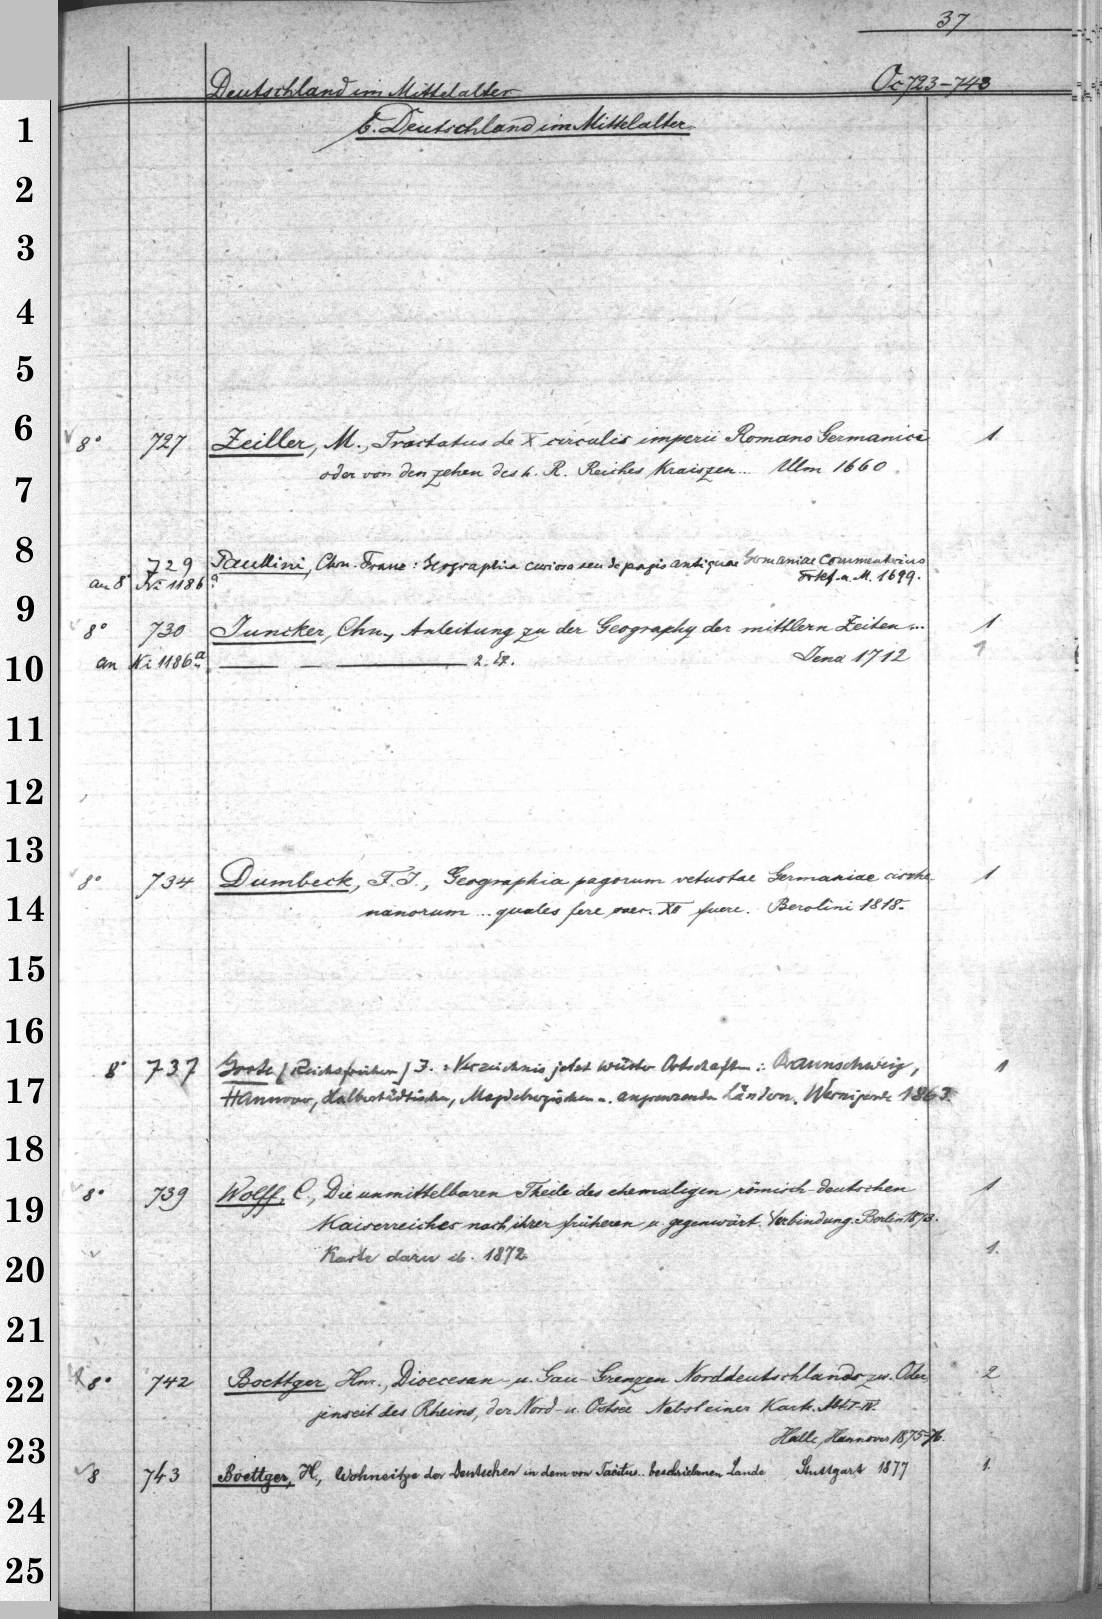 37
Deutschland im Mittelalter Oc 723-743
1 E. Deutschland im Mittelalter
2
3
4
5
6 8° 727 Zeiller, M., Tractatus de X circulis imperii Romano Germanici 1
7 oder von den zehen des h. R. Reiches Kraiszen... Ulm 1660
8 729 Paullini, Chn. Franc: Geographia curiosa seu de pagis antiquae Germaniae Commentarius
an 8° Ni 1186 a Frkf. a. M. 1699.
9 8° 730 Juncker, Chn., Anleitung zu der Geography der mittlern Zeiten... 1
10 an Ni 1186 a — — — 2. Ex. Jena 1712 1
11
12
13 8° 734 Dumbeck, F. J., Geographia pagorum vetustae Germaniae cisrhe 1
14 nanorum ... quales fere saec. XII fuere. Berolini 1818.
15
16
8° 737 Grote [Reichsfreiherr] J.: Verzeichnis jetzt wüster Ortschaften: Braunschweig, 1
17 Hannover, Halberstädtischen, Magdeburgischen u. angrenzenden Ländern. Wernigerode 1863.
18
19 8° 739 Wolff, C., Die unmittelbaren Theile des ehemaligen römisch-deutschen 1
Kaiserreiches nach ihrer früheren u. gegenwärt. Verbindung. Berlin 1873.
20 Karte dazu ib. 1872. 1.
21
22 8° 742 Boettger, Hnr., Dioecesan- u. Gau-Grenzen Norddeutschlands zw. Oder 2
jenseit des Rheins, der Nord- u. Ostsee Nebst einer Karte. Abt. I-IV.
23 Halle, Hannover 1875-76.
8 743 Boettger, H., Wohnsitze der Deutschen in dem von Tacitus.. beschriebenen Lande Stuttgart 1877 1.
24
25